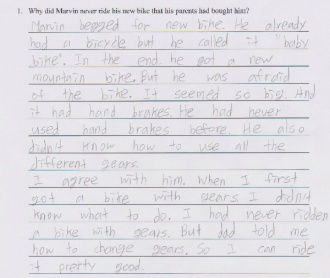 1. Why did Marvin never ride his new bike that his parents had bought him?
Marvin begged for new bike. He already
had a bicycle but he called it "baby
bike". In the end. he got a new
mountain bike. But he was afraid
of the bike. It seemed so big. And
it had hand brakes. He had never
used hand brakes before. He also
didn't know how to use all the
different gears.
I agree with him. When I first
got a bike with gears I didn't
know what to do. I had never ridden
a bike with gears. But dad told me
how to change gears. So I can ride
it pretty good.